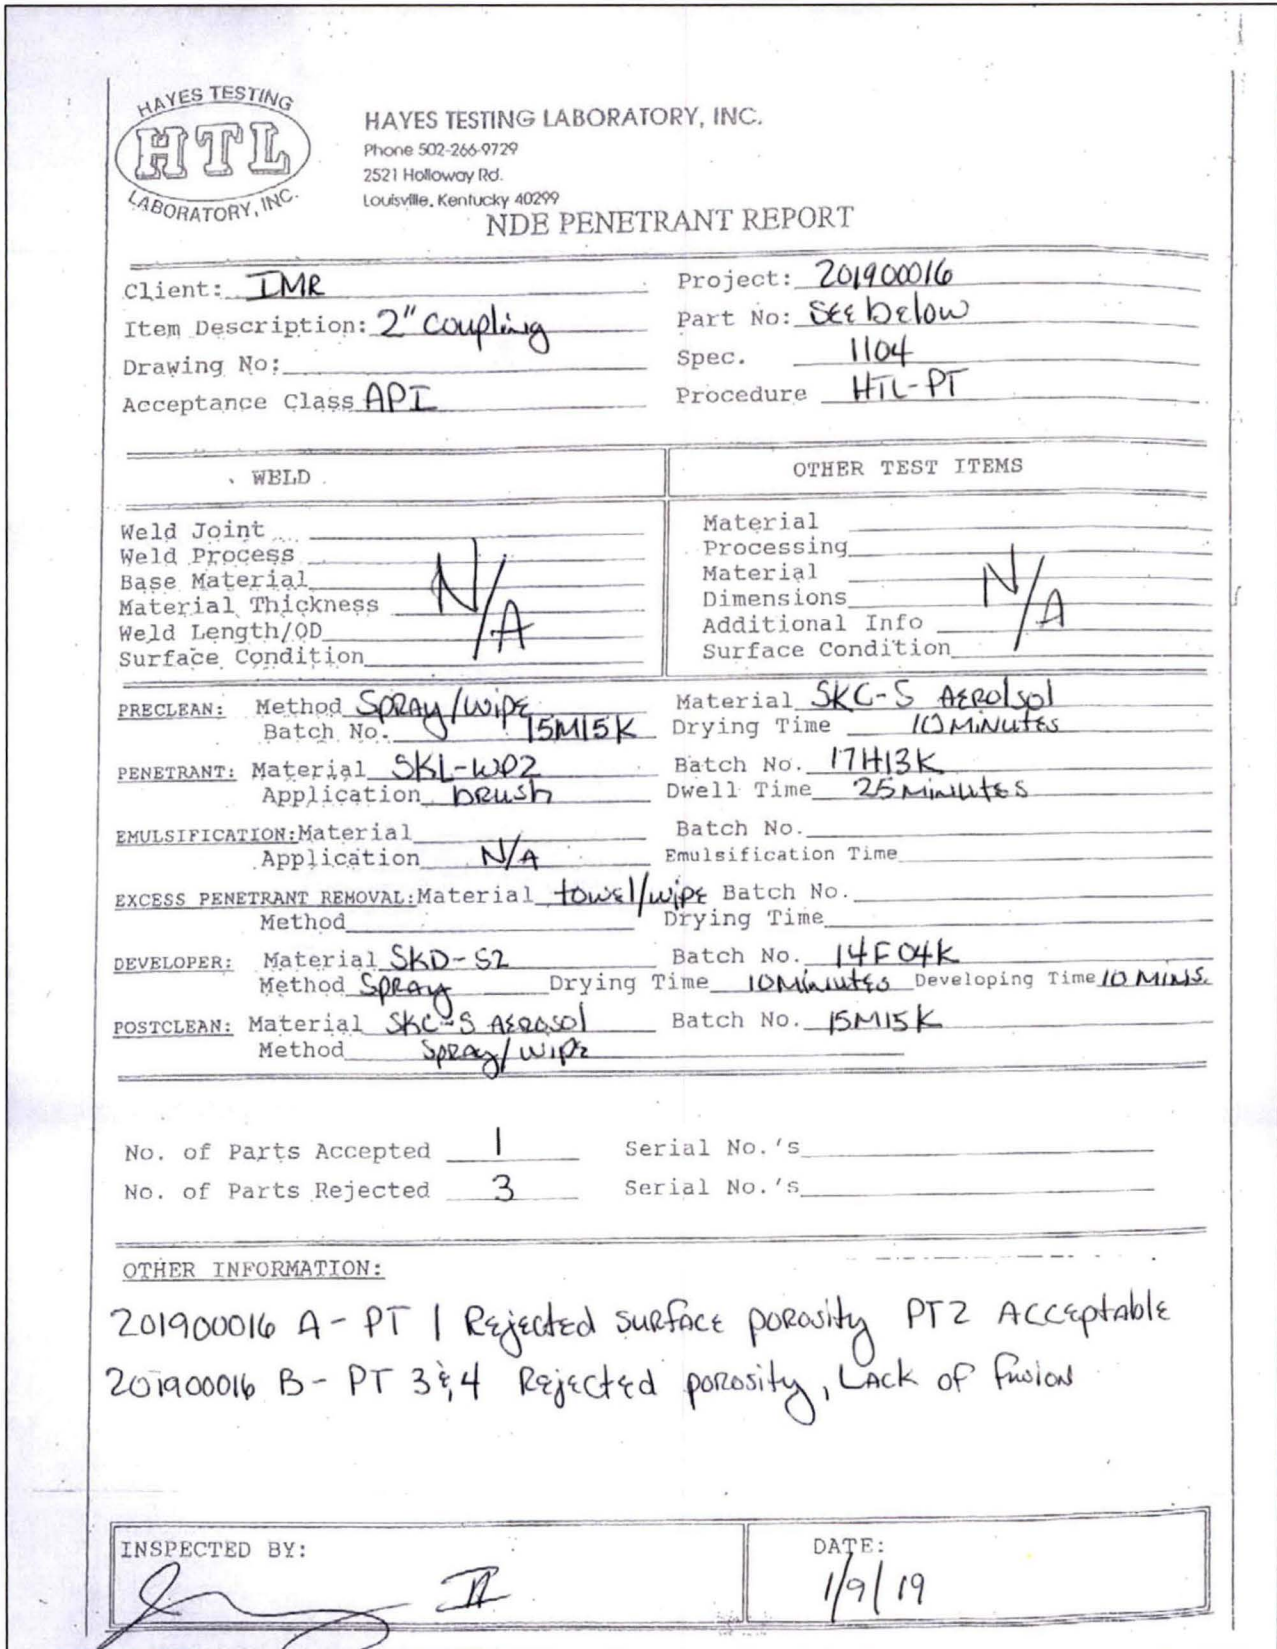 HAYES TESTING
HTL
LABORATORY, INC.
HAYES TESTING LABORATORY, INC.
Phone 502-266-9729
2521 Holloway Rd.
Louisville, Kentucky 40299
NDE PENETRANT REPORT
Client: IMR Project: 201900016
Item Description: 2" Coupling Part No: SEE below
Drawing No: Spec. 1104
Acceptance Class API Procedure HTL-PT
WELD OTHER TEST ITEMS
Weld Joint Material
Weld Process Processing
Base Material N/A Material N/A
Material Thickness Dimensions
Weld Length/OD Additional Info
Surface Condition Surface Condition
PRECLEAN: Method Spray/Wipe Material SKC-S Aerolsol
Batch No. 15M15K Drying Time 10 Minutes
PENETRANT: Material SKL-WP2 Batch No. 17H13K
Application brush Dwell Time 25 Minutes
EMULSIFICATION: Material Batch No.
Application N/A Emulsification Time
EXCESS PENETRANT REMOVAL: Material towel/wipe Batch No.
Method Drying Time
DEVELOPER: Material SKD-S2 Batch No. 14F04K
Method Spray Drying Time 10 Minutes Developing Time 10 MINS.
POSTCLEAN: Material SKC-S Aerosol Batch No. 15M15K
Method Spray/Wipe
No. of Parts Accepted 1 Serial No.'s
No. of Parts Rejected 3 Serial No.'s
OTHER INFORMATION:
201900016 A - PT 1 Rejected surface porosity PT2 Acceptable
201900016 B - PT 3 & 4 Rejected porosity, Lack of fusion
INSPECTED BY: DATE:
II 1/9/19